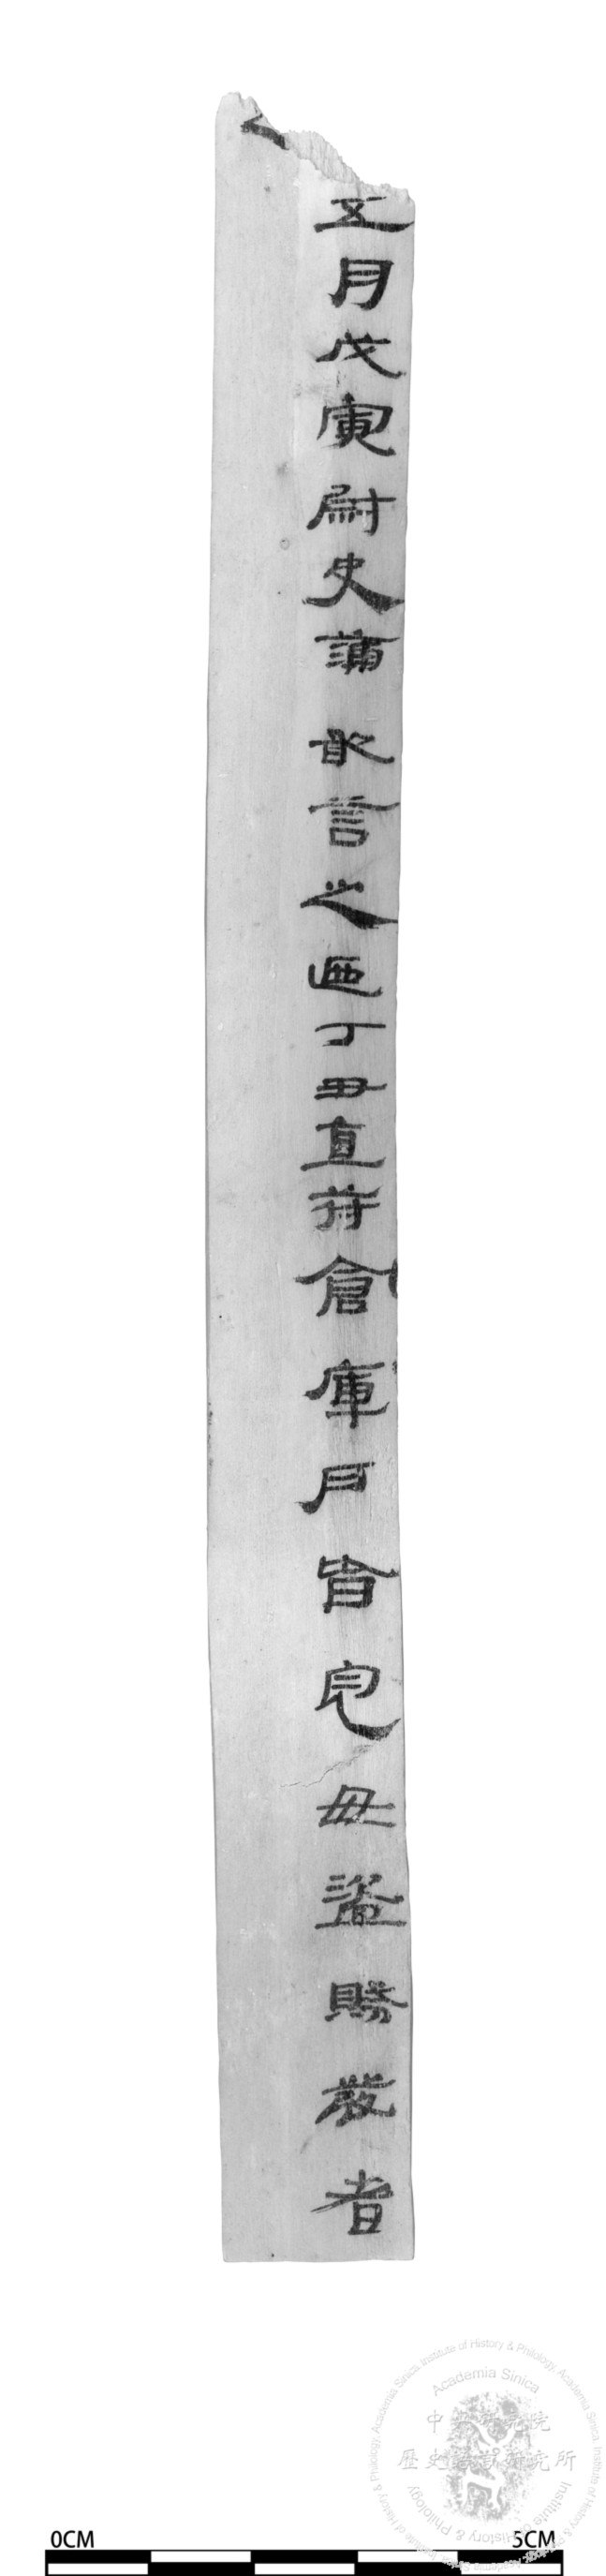 五月戊寅尉史蒲敢言之迺丁丑直符倉庫戶皆完毋盜賊發者
0CM 5CM
Academia Sinica
中央研究院
歷史語言研究所
Institute of History & Philology